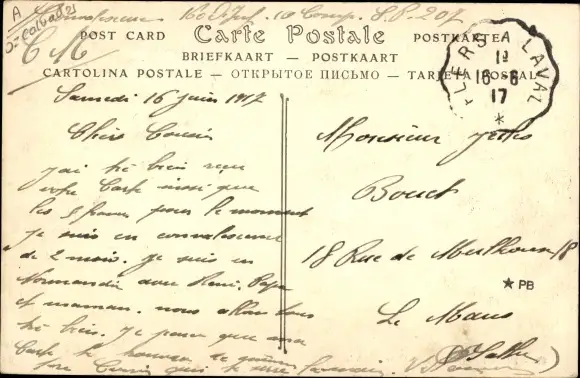 A
Calvados
Convalescence 10 Comp. S.P. 207
C M
POST CARD Carte Postale POSTKARTE
BRIEFKAART — POSTKAART
CARTOLINA POSTALE — ОТКРЫТОЕ ПИСЬМО — TARJETA POSTAL
FLERS A LAVAL
16-6
17
*
Samedi 16 Juin 1917
Chers Cousin
J'ai tré bien reçu
votre Carte ainsi que
les 5 francs pour le moment
je suis en convalescence
de 2 mois. Je suis en
Normandie avec René. Papa
et maman. nous allons tous
tré bien. Je pense que ma
Carte te trouvera de même
ton Cousin qui te serre la main.
Monsieur Jules
Bouet
18 Rue de 18
★ PB
Le Mans
Sarthe